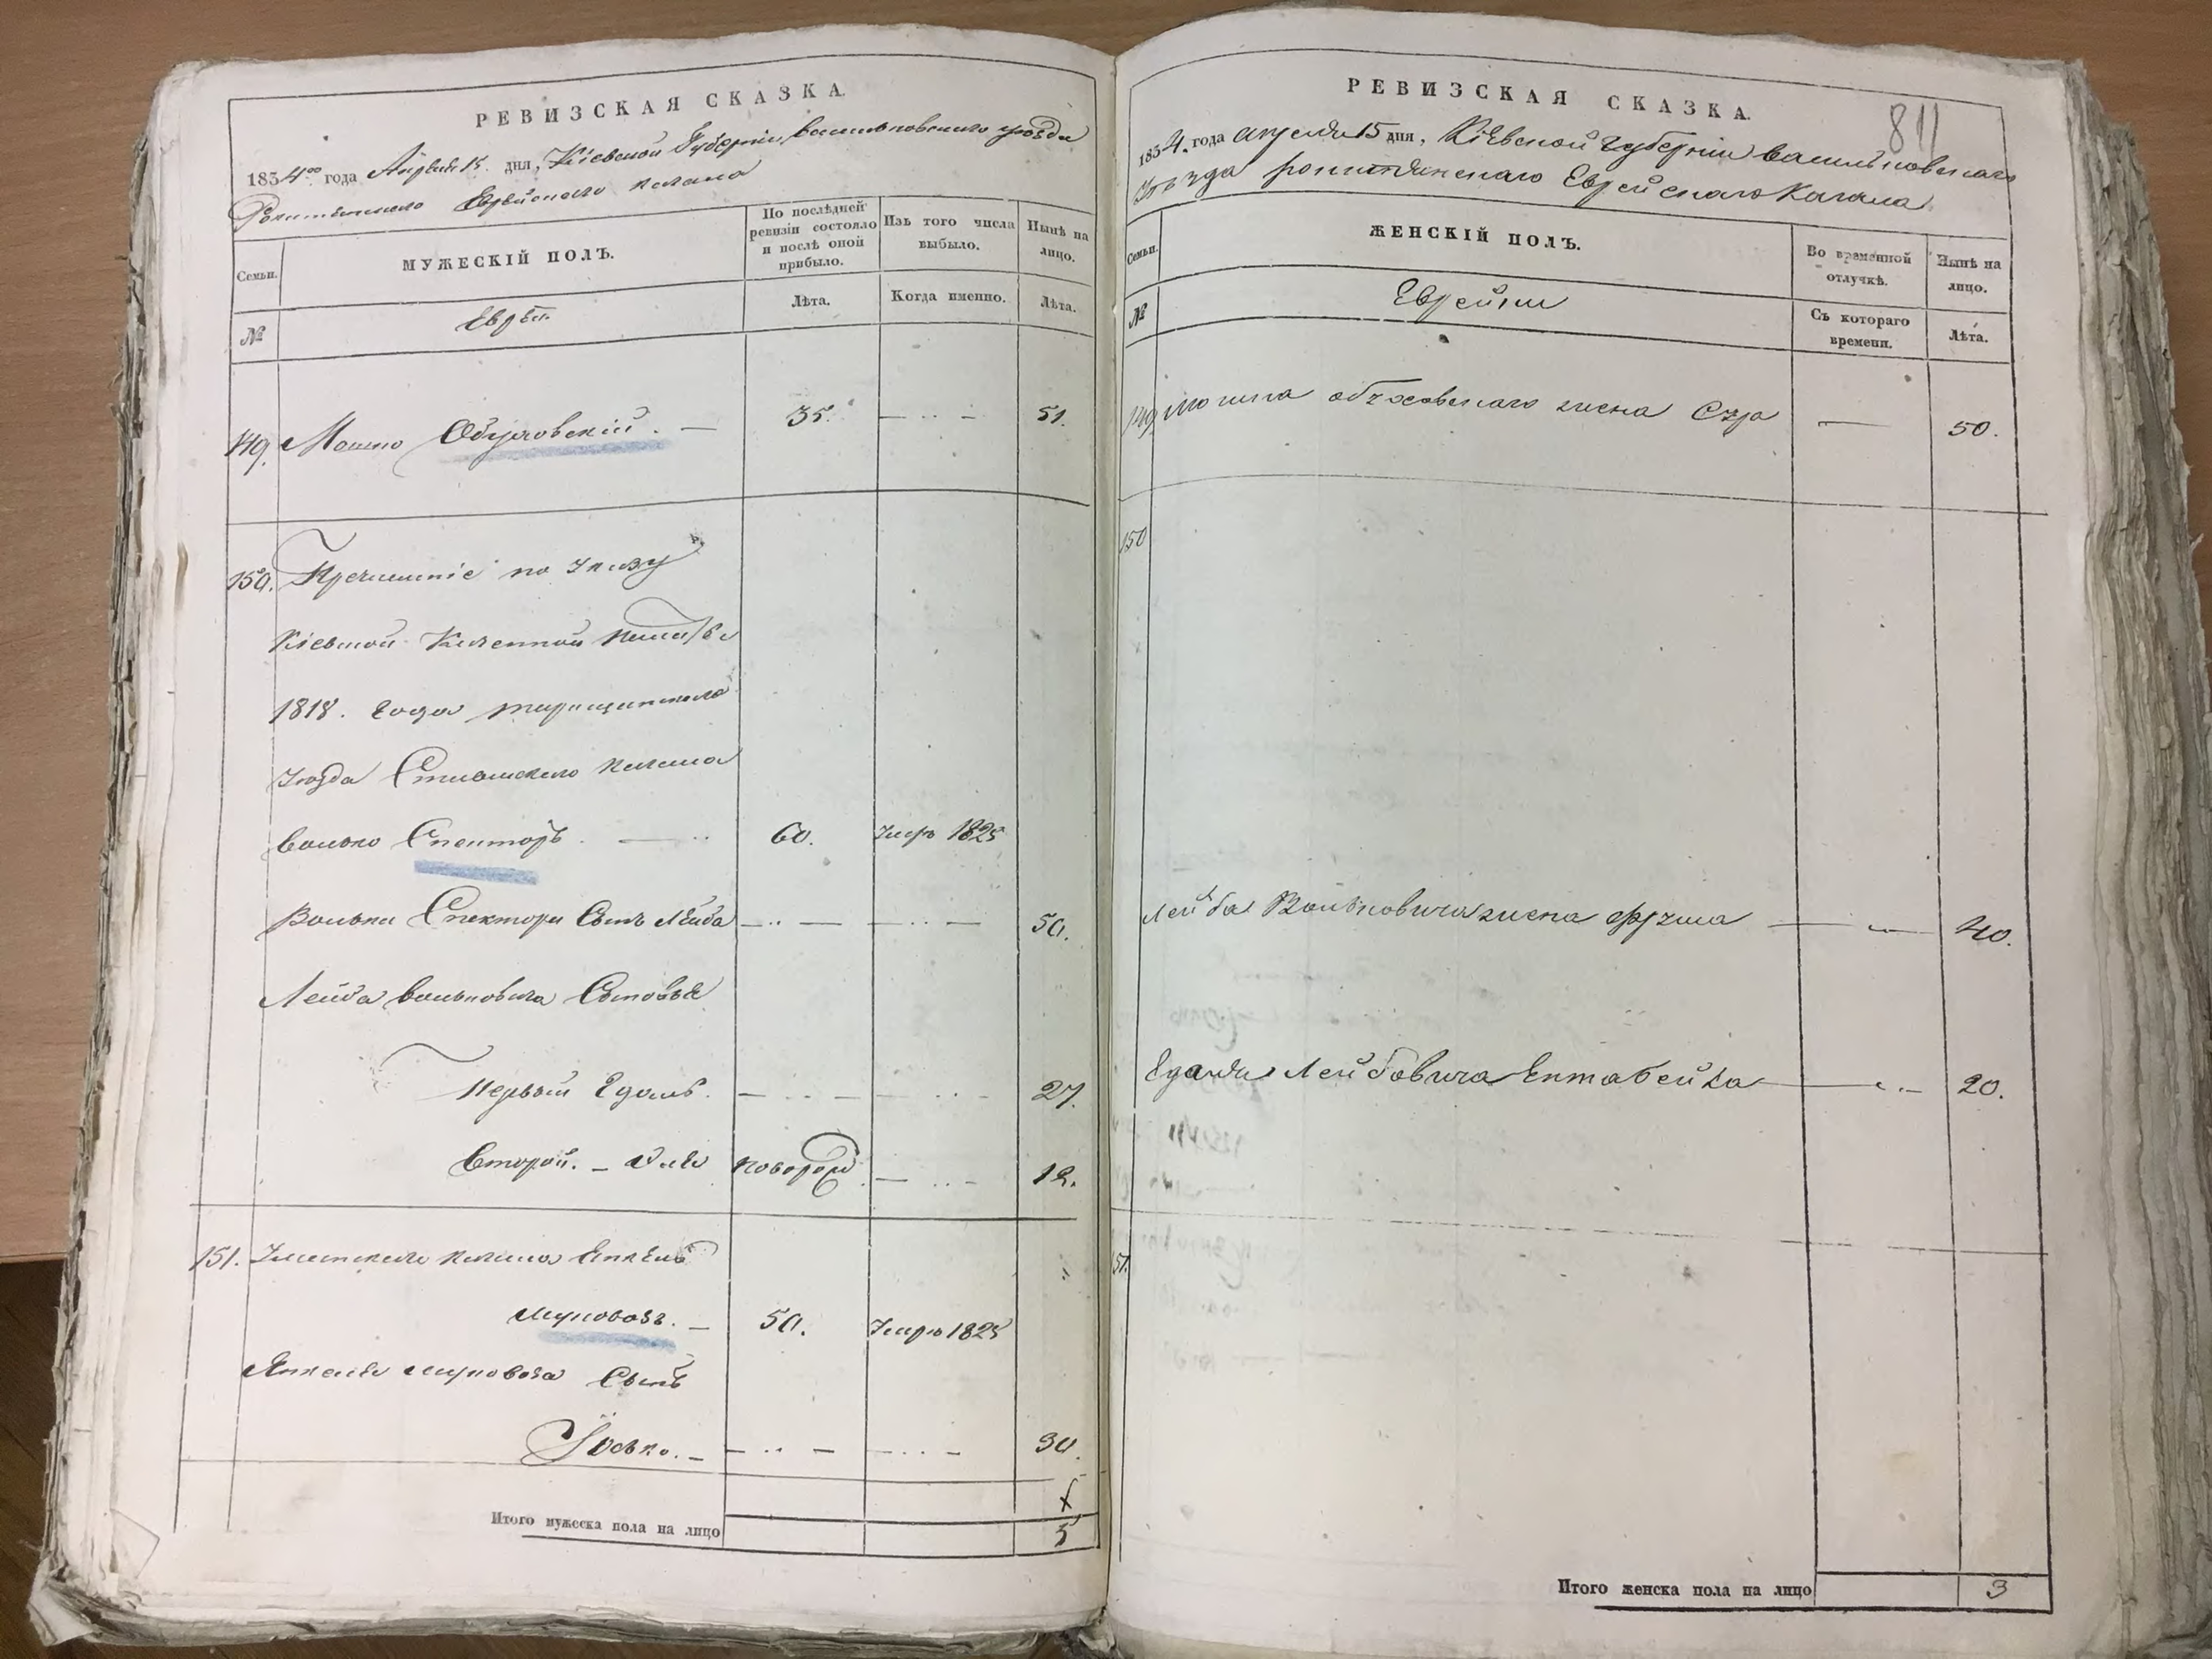 РЕВИЗСКАЯ СКАЗКА.
1834го года Апреля 15. дня, Кіевской Губерніи, васильковскаго уѣзда
Еврейскаго кагала
Семьи.
МУЖЕСКІЙ ПОЛЪ.
По послѣдней ревизіи состояло и послѣ оной прибыло.
Изъ того числа выбыло.
Нынѣ на лицо.
№
Евреи.
Лѣта.
Когда именно.
Лѣта.
149. Мошко Обуховскій. — 35. — 51.
150. по Указу
Кіевской Казенной палаты
1818. года таращанскаго
Уѣзда кагала
Волько Спекторъ. — 60. Умеръ 1825
Волька Спектора Сынъ Лейба — 50.
Лейба Вольковича Сыновья
Первый — 27.
Второй. — новорож. — 12.
151. кагала Янкель
Муковозъ. — 50. Умеръ 1825
Янкеля Муковоза Сынъ
Іосько. — 30.
Итого мужеска пола на лицо 5
РЕВИЗСКАЯ СКАЗКА.
811
1834. года апреля 15 дня, Кіевской губерніи васильковскаго
Уѣзда Еврейскаго Кагала
Семьи.
ЖЕНСКІЙ ПОЛЪ.
Во временной отлучкѣ.
Нынѣ на лицо.
№
Еврейки
Съ котораго времени.
Лѣта.
149. Мошка Обуховскаго жена — 50.
150
Лейба Вольковича жена Фрума — 40.
Лейбовича — 20.
151.
Итого женска пола на лицо 3